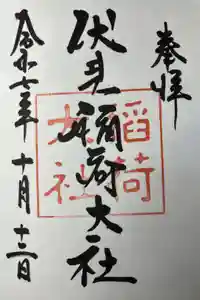 奉拝
伏見稲荷大社
稲荷
大社
令和七年十月十二日